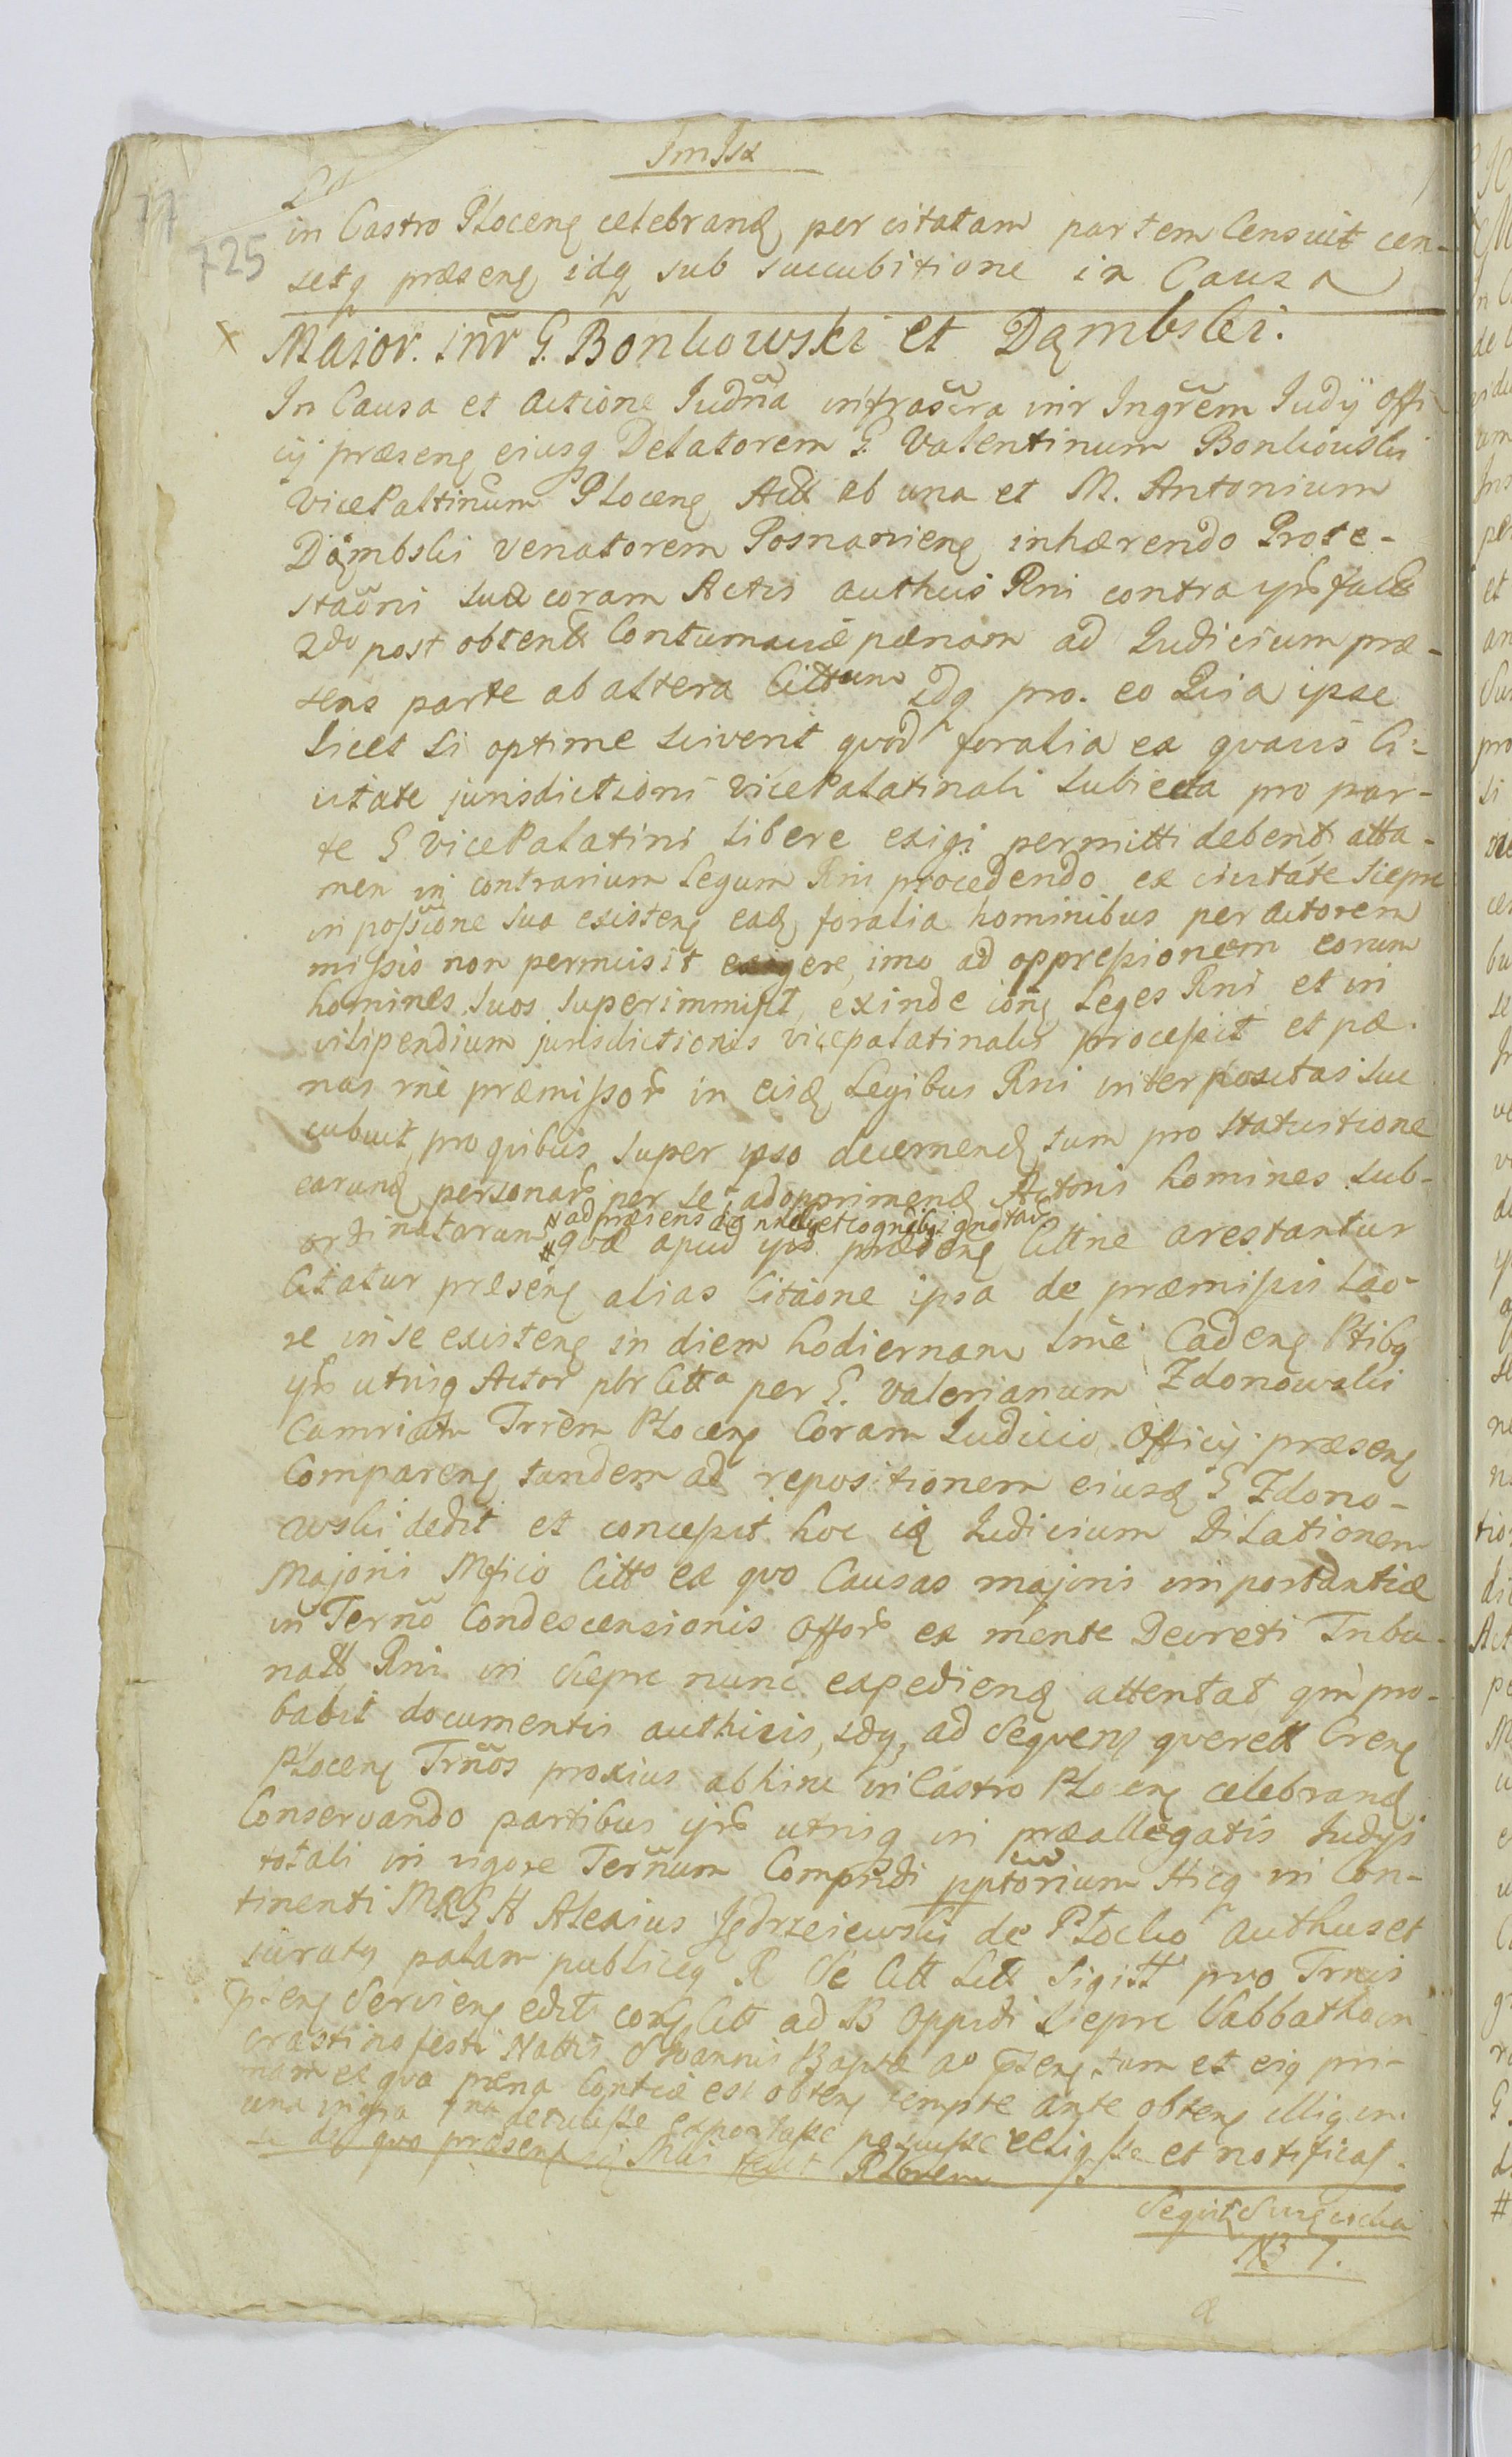 77
725
in Castro Plocen celebrand per citatam partem Censuit cen-
setq præsen idq sub succubitione in Causa
Major. inr G. Bonkowski et Dąmbski.
In Causa et Actione Judña infrascra inr Ingrem Judÿ Offi
cij præsen eiusq Delatorem G. Valentinum Bonkowski
VicePaltinum Plocen Act ab una et M. Antonium
Dąmbski Venatorem Posnanien inhærendo Prote-
staoni suæ coram Actis authcis Rni contra yrs fact
2do post obtent Contumaciæ pænam ad Judicium præ-
sens parte ab altera Cittum Idq pro. eo Quia ipse
licet si optime sciverit quod foralia ex quavis Ci-
vitate jurisdictioni VicePalatinali subiecta pro par-
te G VicePalatini libere exigi permitti debent atta-
men in contrarium Legum Rni procedendo ex civitate Siepre
in possione sua existen ead foralia hominibus per actorem
missis non permisit exigere, imo ad oppressionem eorum
homines suos superimmisit, exinde Leges Rni et in
vilipendium jurisdictionis vicepalatinalis processit et pæ-
nas rne præmissor in eisd Legibus Rni interpositas suc
cubuit, pro quibus super ipso decernend tum pro statuitione
earund personar per se ad opprimend Actoris homines sub-
# ad præsens de nnibq et cognibq ignotar
ordinatorum # quæ apud yrs præsen Cittne arestantur
Citatur præsen alias Citaone ipsa de præmissis lao-
re in se existen in diem hodiernam Lme Caden Ptibq
yrs utrisq Actor pbr Citta per G. Valerianum Zdonowski
Camriatu Trrem Plocen Coram Judicio Officij præsen
Comparen tandem ad repositionem eiusd G Zdono-
wski dedit et concessit hoc id Judicium Dilationem
Majoris Mficio Citto ex quo Causas majoris importantiæ
in Terno Condescensionis Offor ex mente Decreti Tribu-
natt Rni in Siepre nunc expediend attentat qm pro-
babit documentis authicis, idq, ad sequens querell Cren
Plocen Trnos proxius abhinc in Castro Plocen celebrand
Conservando partibus yrs utrisq in præallegatis Judijs
totali in vigore Ternum Compndi pptorium Hicq in Con-
tinenti MRGH Alexius Jędrzeiewski de Płocko authus et
juratq palam publiceq R Citt Litt Sigitt pro Trnis
pten Servien edit Citt ad B Oppidi Siepre Sabbatho in
crastino festi Nattis S Joannis Baptæ ao pten tum et eiq pri-
mam ex qua pæna Contiæ est obten tempte ante obten illiq in
una detulisse exportasse posuisse et notificas.
de quo præsen fecit Rlonem
Sequit
No 7.